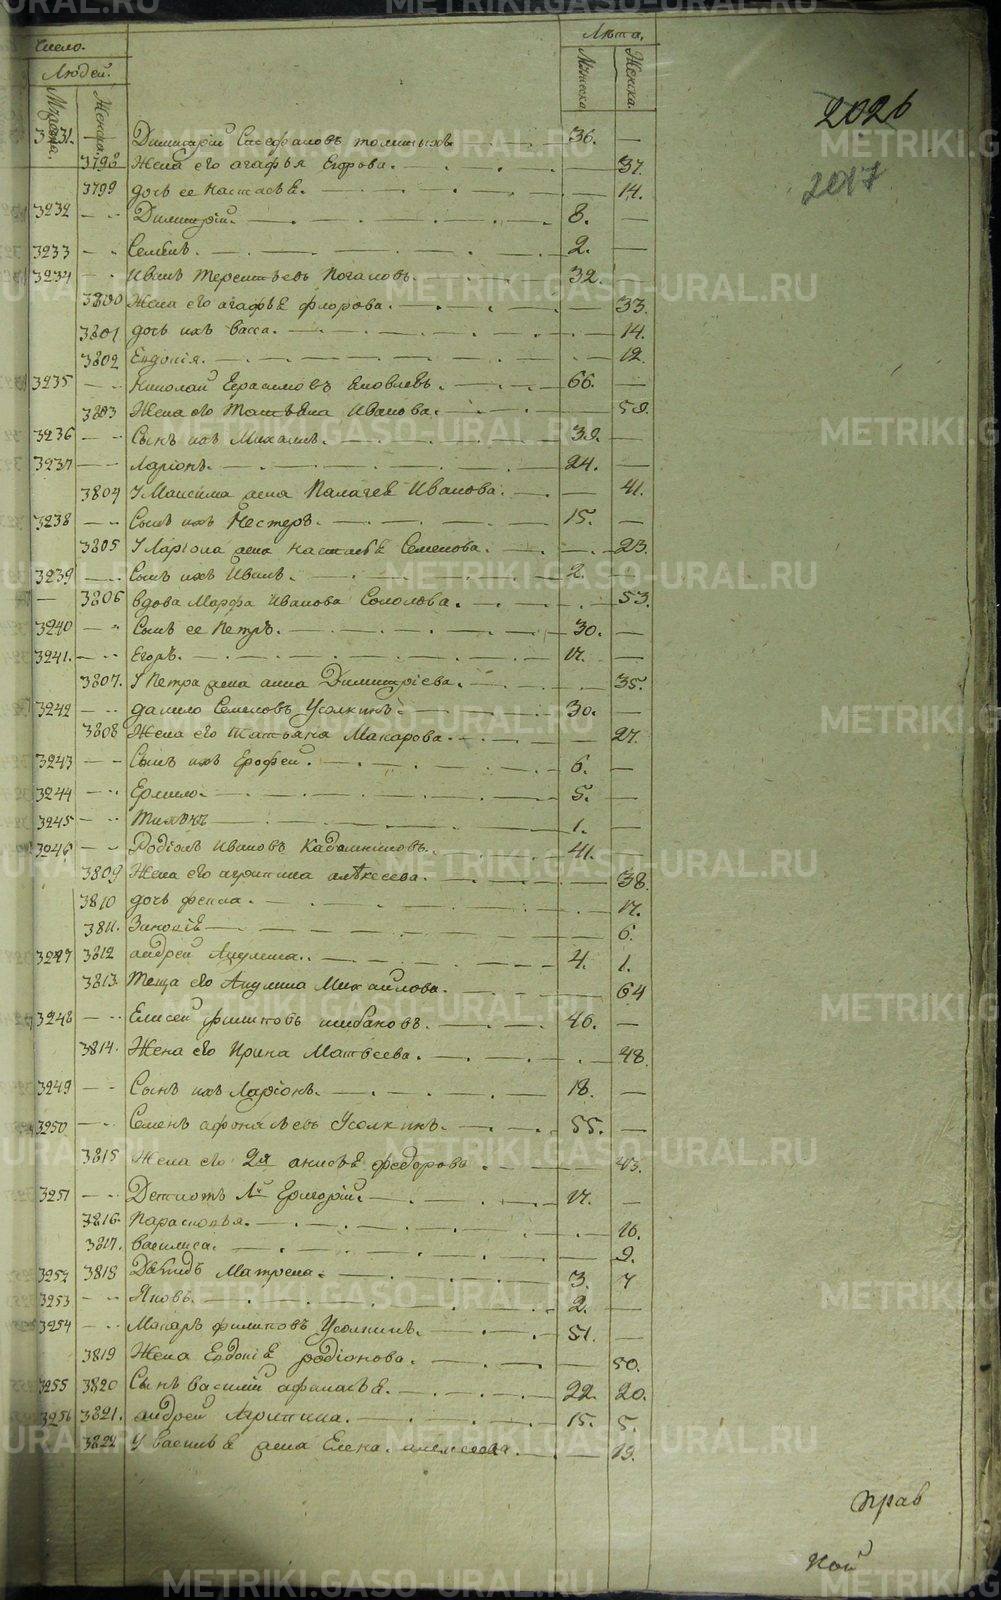 Число. Лѣта.
Людей. Мужеска. Женска.
Мужска. Женска.
2026
2017
3231. Димитрій Стефановъ 36. —
3798 Жена его агафья Егорова. 37.
3799 дочь ее настасьѣ. 14.
3232 Димитрій. 8. —
3233 Семенъ. 2. —
3234 Иванъ Терентьевъ Погановъ. 32. —
3800 Жена его агафьѣ флорова. — 33.
3801 дочь ихъ васса. — 14.
3802 Евдокія. — 12.
3235 Николай Герасимовъ Яковлевъ. 66. —
3803 Жена его Татьяна Иванова. 59.
3236 Сынъ ихъ Михаилъ. 39. —
3237 Ларіонъ. 24. —
3804 У Максима жена Палагеѣ Иванова. — 41.
3238 Сынъ ихъ Нестеръ. 15. —
3805 У Ларіона жена настасьѣ Семенова. — 23.
3239 Сынъ ихъ Иванъ. 2. —
— 3806 вдова Марфа Иванова Соколова. 53.
3240 Сынъ ее Петръ. 30. —
3241. Егоръ. 17. —
3807. У Петра жена анна Димитріева. 35.
3242 данило Семеновъ Усолкинъ. 30. —
3808 Жена его татьяна Макарова. — 27.
3243 Сынъ ихъ Ерофей. 6. —
3244 Ермило. 5. —
3245 1. —
3246 Родіонъ Ивановъ 41. —
3809 Жена его агрипина алѣксеева. — 38.
3810 дочь фекла. 17.
3811. Зиновіѣ 6.
3247 3812 андрей Акулина. 4. 1.
3813. Теща его Акулина Михайлова. 64
3248 Елисей филиповъ шибановъ. 46. —
3814. Жена его Ирина Матвеева. 48.
3249 Сынъ ихъ Ларіонъ. 18. —
3250 Семенъ афонасьевъ Усолкинъ. 55. —
3815 Жена его 2я анисьѣ федорова 43.
3251 Григорій. 17. —
3816. Парасковья. 16.
3817. василиса. 9.
3252 3818 Давыдъ Матрена. 3. 7
3253 Яковъ. 2. —
3254 Макаръ филиповъ Усолкинъ. 51. —
3819 Жена Евдокіѣ родіонова. — 50.
3255 3820 Сынъ василій афанасьѣ. 22. 20.
3256 3821. андрей Агрипина. 15. 5.
3822 У василья жена Елена 19.
прав
кой
METRIKI.GASO-URAL.RU